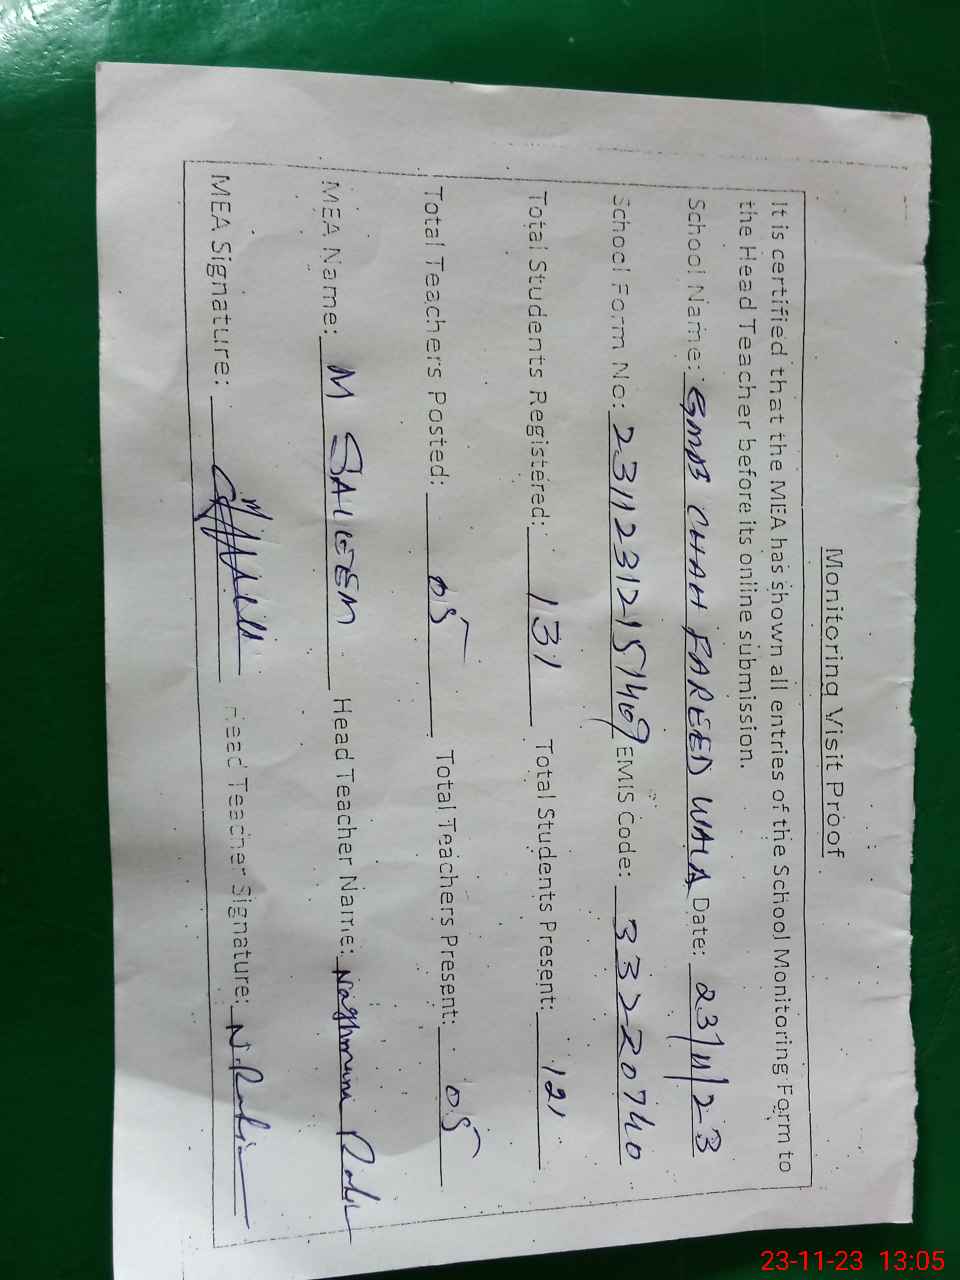 Monitoring Visit Proof
It is certified that the MEA has shown all entries of the School Monitoring Form to
the Head Teacher before its online submission.
School Name: GMB CHAH FAREED WALA Date: 23/11/23
School Form No: 2311231215 EMIS Code: 33220740
Total Students Registered: 131 Total Students Present: 121
Total Teachers Posted: 05 Total Teachers Present: 05
MEA Name: M SALEEM Head Teacher Name:
MEA Signature: Head Teacher Signature:
23-11-23 13:05